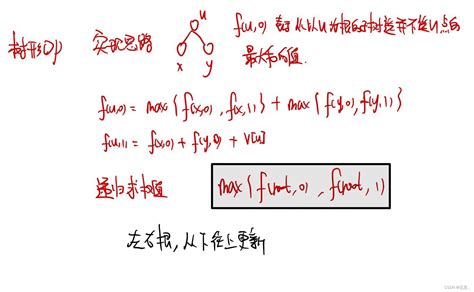 树形DP 实现思路 u f(u,0) 表示从以u为根的子树中选并不选u点的
x y 最大和的值.
f(u,0) = max{f(x,0), f(x,1)} + max{f(y,0), f(y,1)}
f(u,1) = f(x,0) + f(y,0) + V[u]
递归求权值 max{f(root,0), f(root,1)}
左右根,从下往上更新